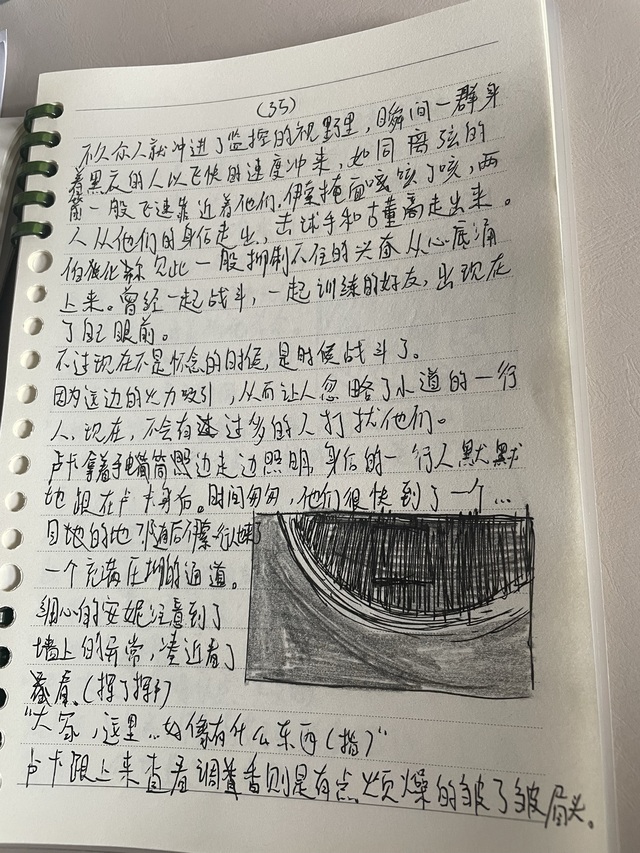 (35)
不久众人就冲进了监控的视野里，瞬间一群身
着黑衣的人以飞快的速度冲来，如同离弦的
箭一般飞速靠近着他们。伊索掩面咳咳了咳，两
人从他们的身后走出，击球手和古董商走出来。
此一股抑制不住的兴奋从心底涌
上来。曾经一起战斗，一起训练的好友，出现在
了自己眼前。
不过现在不是怀念的时候，是时候战斗了。
因为这边的火力吸引，从而让人忽略了水道的一行
人，现在，不会有过多的人打扰他们。
卢卡拿着手电筒边走边照明，身后的一行人默默
地跟在卢卡身后。时间匆匆，他们很快到了一个…
目地的地
一个充满压抑的通道。
细心的安妮注意到了
墙上的异常，凑近看了
看。(撑了撑)
“大家，这里…好像有什么东西(指)”
卢卡跟上来查看调香则是有点烦燥的皱了皱眉头。